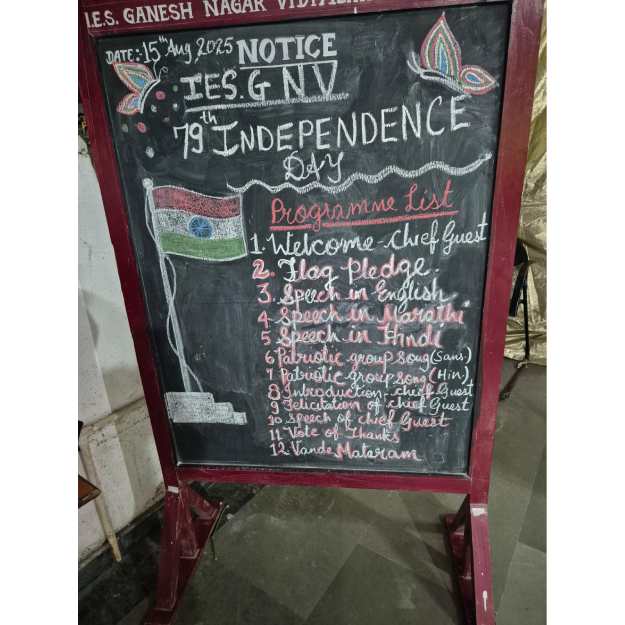 I.E.S. GANESH NAGAR
DATE: 15th Aug 2025
NOTICE
IES. G N V
79th INDEPENDENCE
DAY
Programme List
1. Welcome - Chief Guest
2. Flag pledge.
3. Speech in English
4. Speech in Marathi
5 Speech in Hindi
6 Patriotic group song (Sans.)
7 Patriotic group song (Hin.)
8 Introduction - chief Guest
9 Felicitation of chief Guest
10 Speech of chief Guest
11 Vote of Thanks
12 Vande Mataram